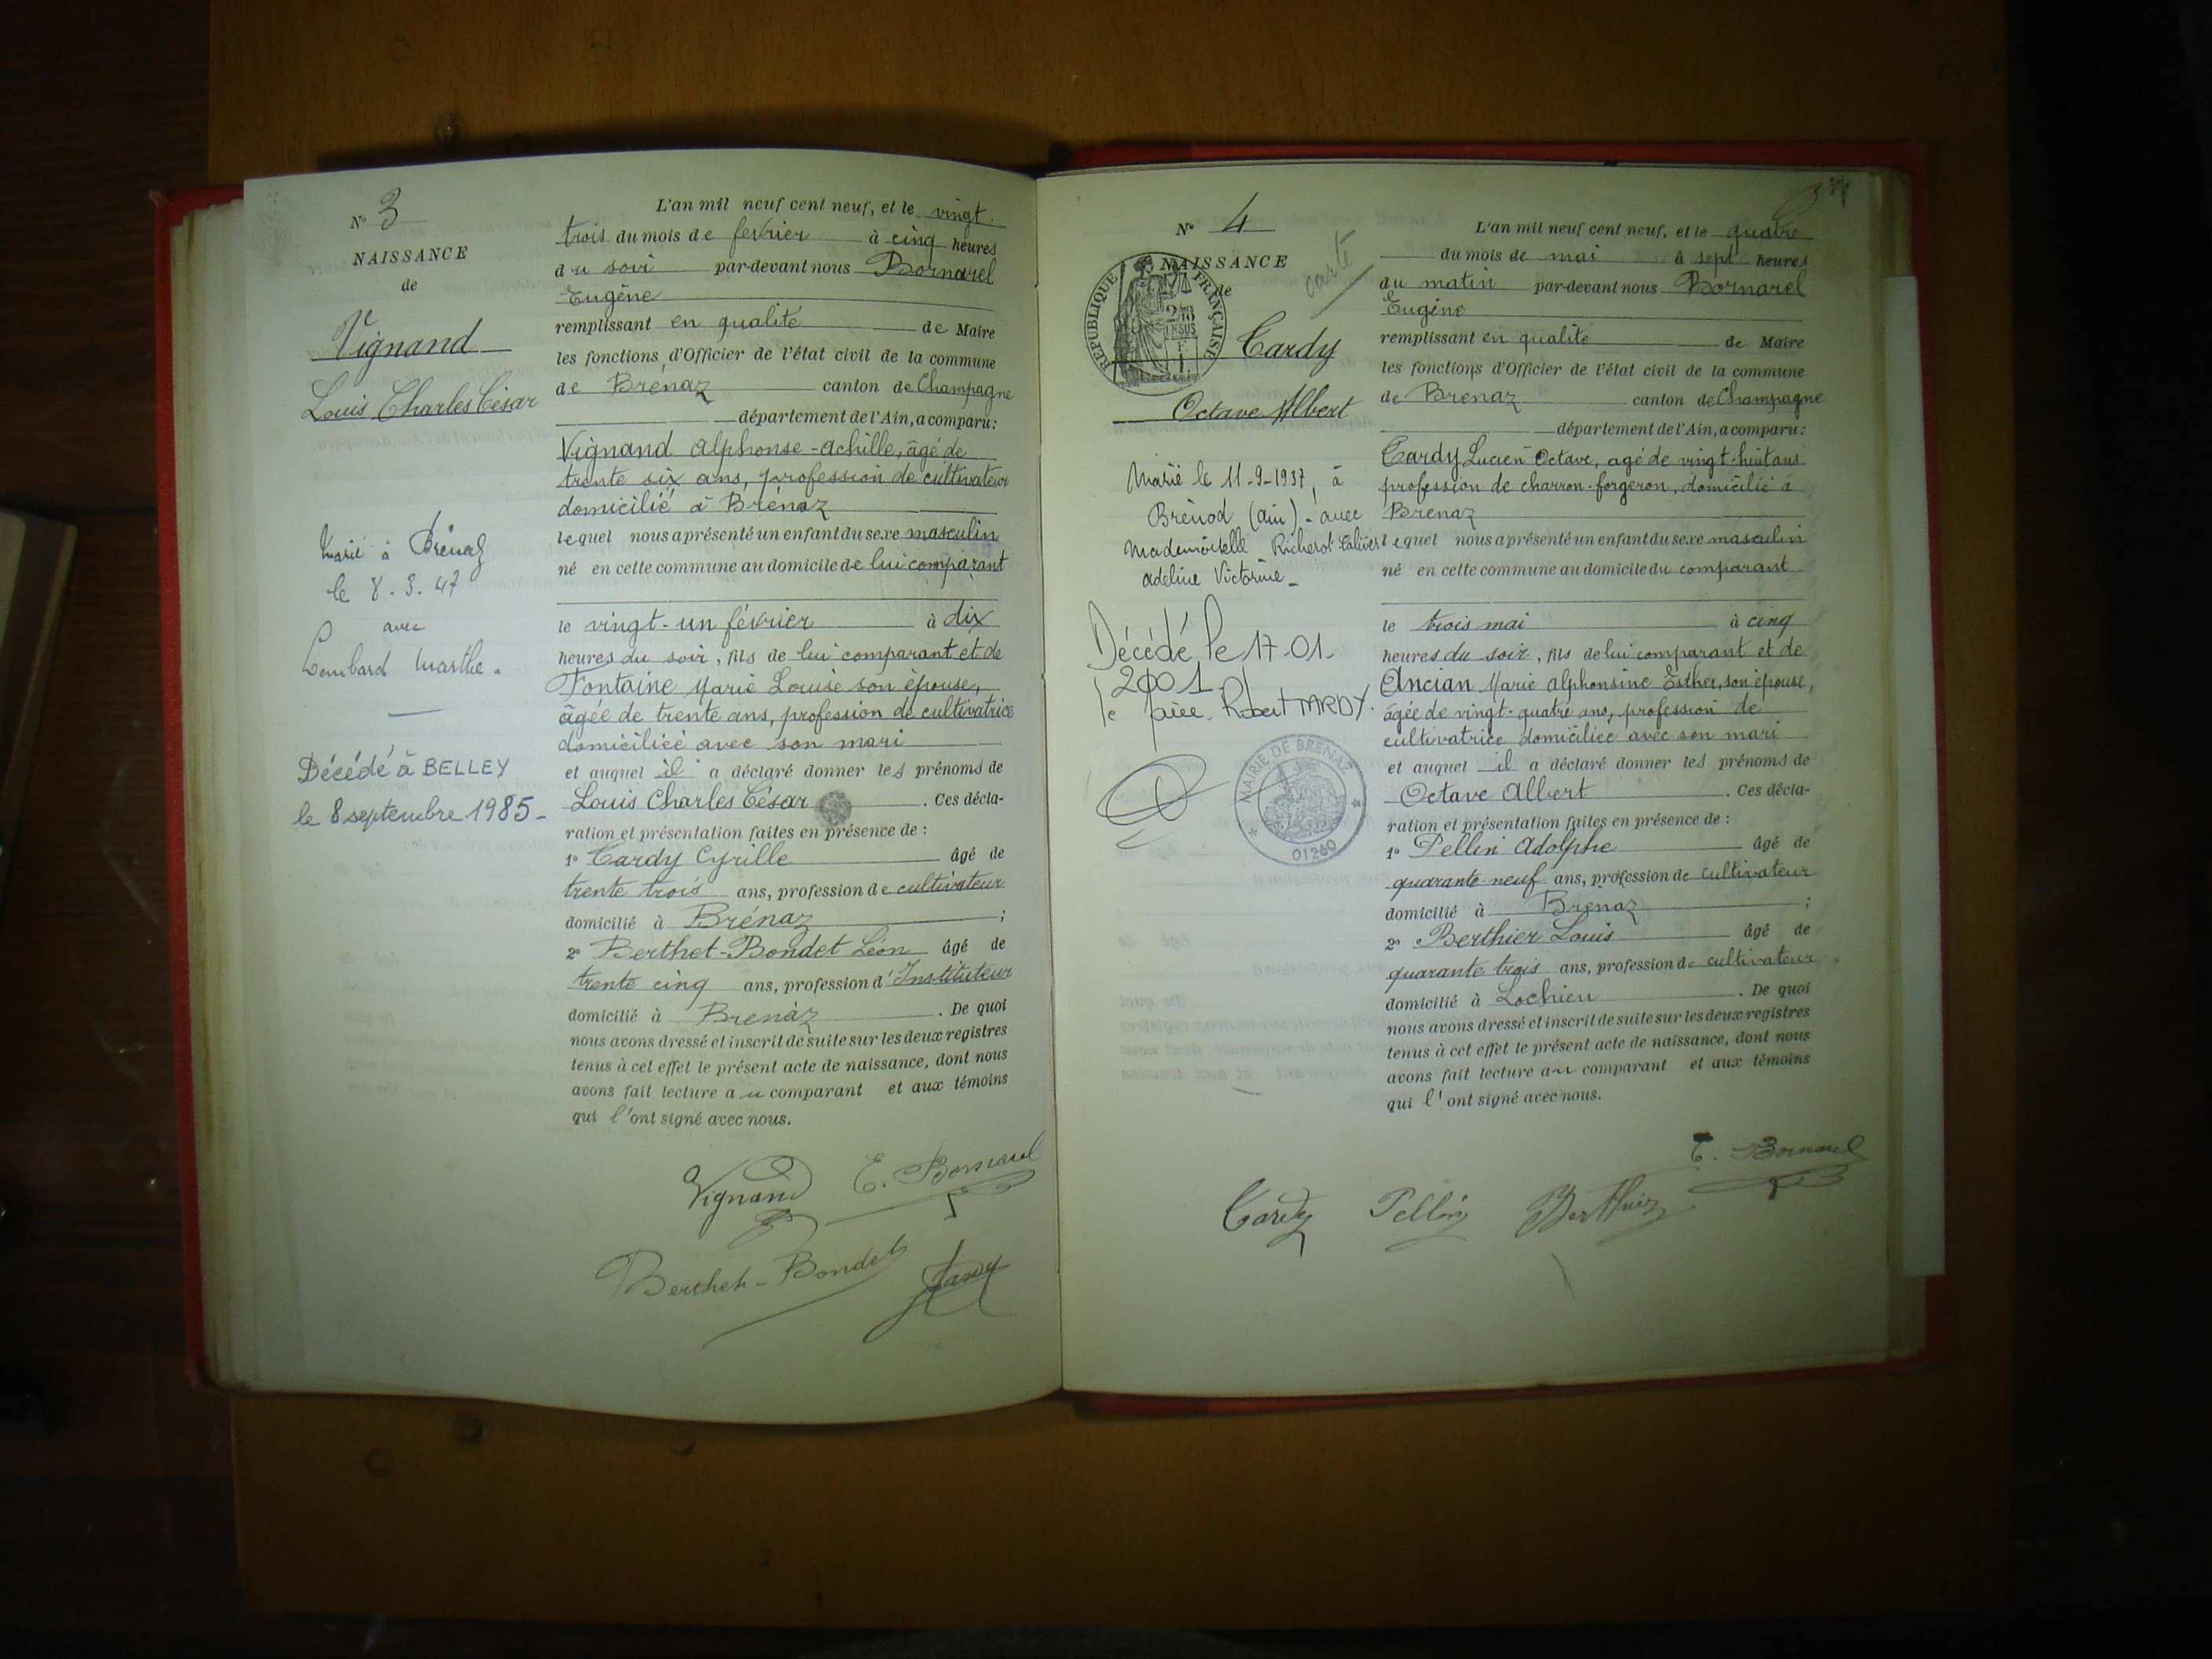 N° 3
NAISSANCE
de
Vignand
Louis Charles César
Marié à Brénaz
le 8.3.47
avec
Lombard Marthe.
Décédé à BELLEY
le 8 septembre 1985-
L'an mil neuf cent neuf, et le vingt-
trois du mois de février à cinq heures
du soir par-devant nous Bornarel
Eugène
remplissant en qualité de Maire
les fonctions d'Officier de l'état civil de la commune
de Brénaz canton de Champagne
département de l'Ain, a comparu:
Vignand Alphonse-Achille, âgé de
trente six ans, profession de cultivateur
domicilié à Brénaz
lequel nous a présenté un enfant du sexe masculin
né en cette commune au domicile de lui comparant
le vingt-un février à dix
heures du soir, fils de lui comparant et de
Fontaine Marie Louise son épouse,
âgée de trente ans, profession de cultivatrice
domiciliée avec son mari
et auquel il a déclaré donner les prénoms de
Louis Charles César. Ces décla-
ration et présentation faites en présence de :
1° Tardy Cyrille âgé de
trente trois ans, profession de cultivateur
domicilié à Brénaz ;
2° Berthet-Bondet Léon âgé de
trente cinq ans, profession d'Instituteur
domicilié à Brénaz. De quoi
nous avons dressé et inscrit de suite sur les deux registres
tenus à cet effet le présent acte de naissance, dont nous
avons fait lecture au comparant et aux témoins
qui l'ont signé avec nous.
Vignand E. Bornarel
Berthet-Bondet Tardy
N° 4
NAISSANCE
de
carte
RÉPUBLIQUE FRANÇAISE
Tardy
Octave Albert
Marié le 11-9-1937, à
Brénod (Ain) - avec
Mademoiselle Richerot
Adeline Victorine-
Décédé le 17-01-
2001
Robert TARDY.
MAIRIE DE BRENAZ
01260
L'an mil neuf cent neuf, et le quatre
du mois de mai à sept heures
du matin par-devant nous Bornarel
Eugène
remplissant en qualité de Maire
les fonctions d'Officier de l'état civil de la commune
de Brenaz canton de Champagne
département de l'Ain, a comparu:
Tardy Lucien Octave, agé de vingt-huit ans
profession de charron-forgeron, domicilié à
Brenaz
lequel nous a présenté un enfant du sexe masculin
né en cette commune au domicile du comparant
le trois mai à cinq
heures du soir, fils de lui comparant et de
Ancian Marie Alphonsine Esther, son épouse,
âgée de vingt-quatre ans, profession de
cultivatrice domiciliée avec son mari
et auquel il a déclaré donner les prénoms de
Octave Albert. Ces décla-
ration et présentation faites en présence de :
1° Pellin Adolphe âgé de
quarante-neuf ans, profession de cultivateur
domicilié à Brénaz ;
2° Berthier Louis âgé de
quarante trois ans, profession de cultivateur
domicilié à Lochieu. De quoi
nous avons dressé et inscrit de suite sur les deux registres
tenus à cet effet le présent acte de naissance, dont nous
avons fait lecture au comparant et aux témoins
qui l'ont signé avec nous.
E. Bornarel
Tardy Pellin Berthier